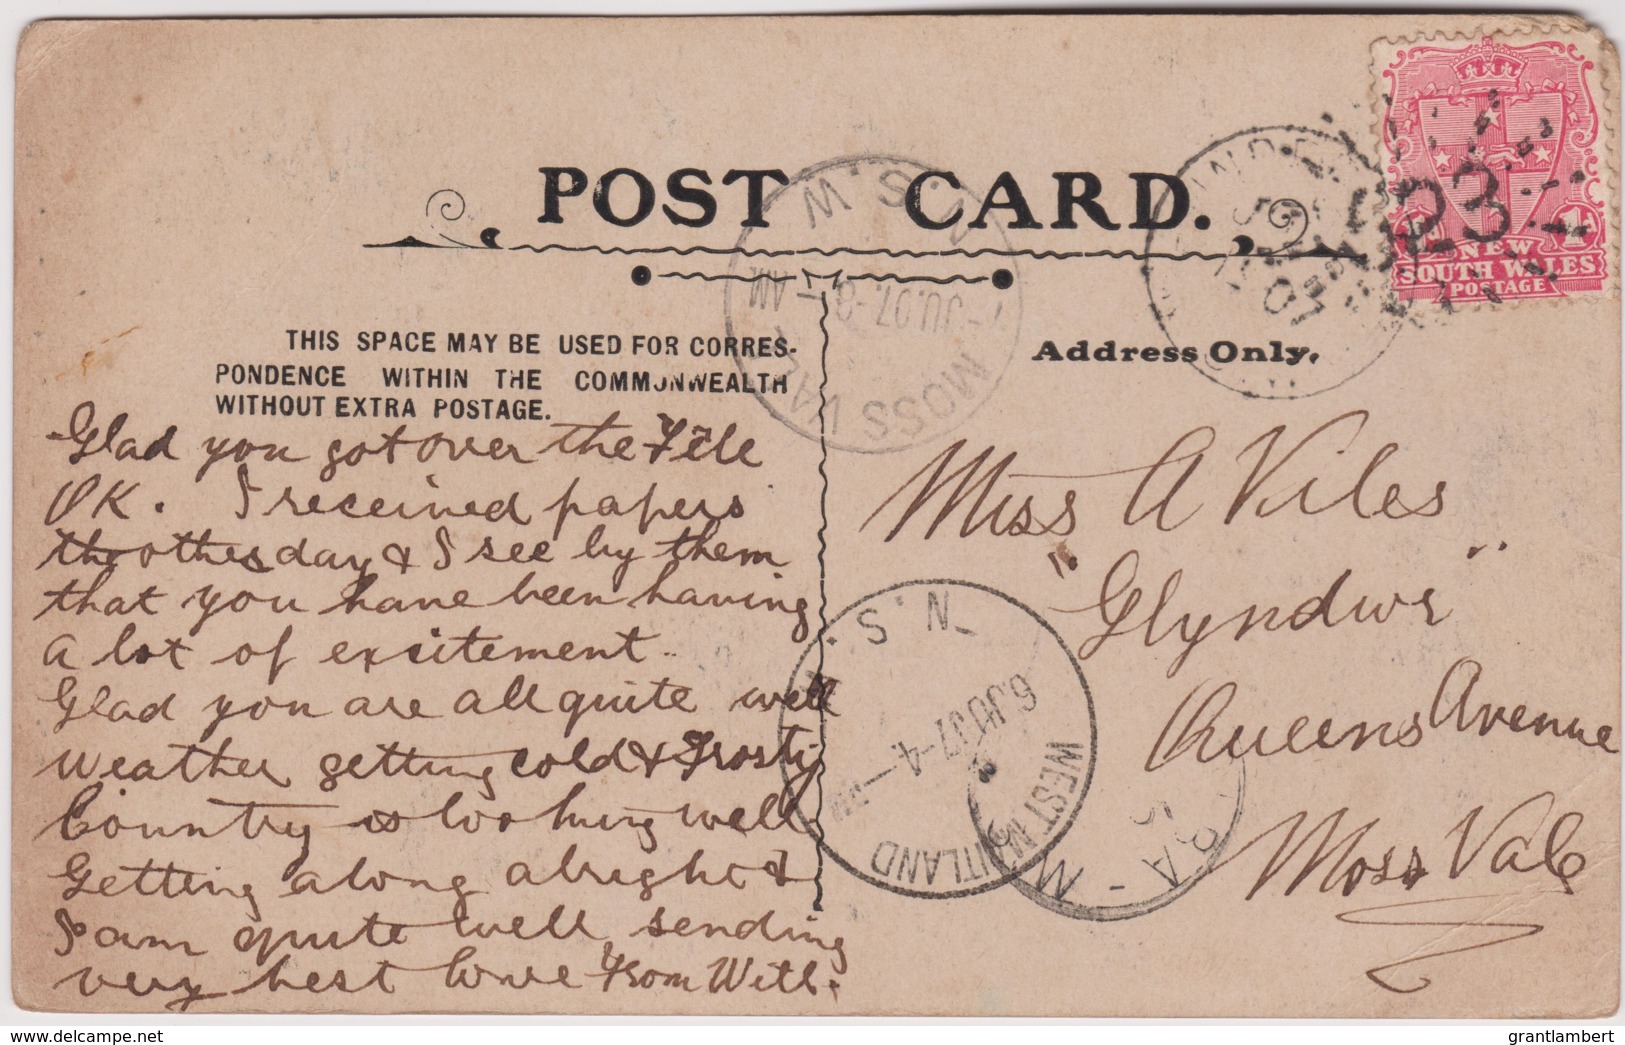 POST CARD.
THIS SPACE MAY BE USED FOR CORRES-
PONDENCE WITHIN THE COMMONWEALTH
WITHOUT EXTRA POSTAGE.
Glad you got over the Fête
OK. I received papers
the other day & I see by them
that you have been having
a lot of excitement.
Glad you are all quite well
weather getting cold & Frosty
Country is looking well
Getting along alright &
I am quite well, sending
very best love from Will.
Address Only.
Miss A Viles
"Glyndwr"
Queens Avenue
Moss Vale
NEW
SOUTH WALES
POSTAGE
1d
23
N.S.W
JU.07 8 - AM
MOSS VALE
N.S.
6.JU.07-4
WEST MAITLAND
07
grantlambert
delcampe.net